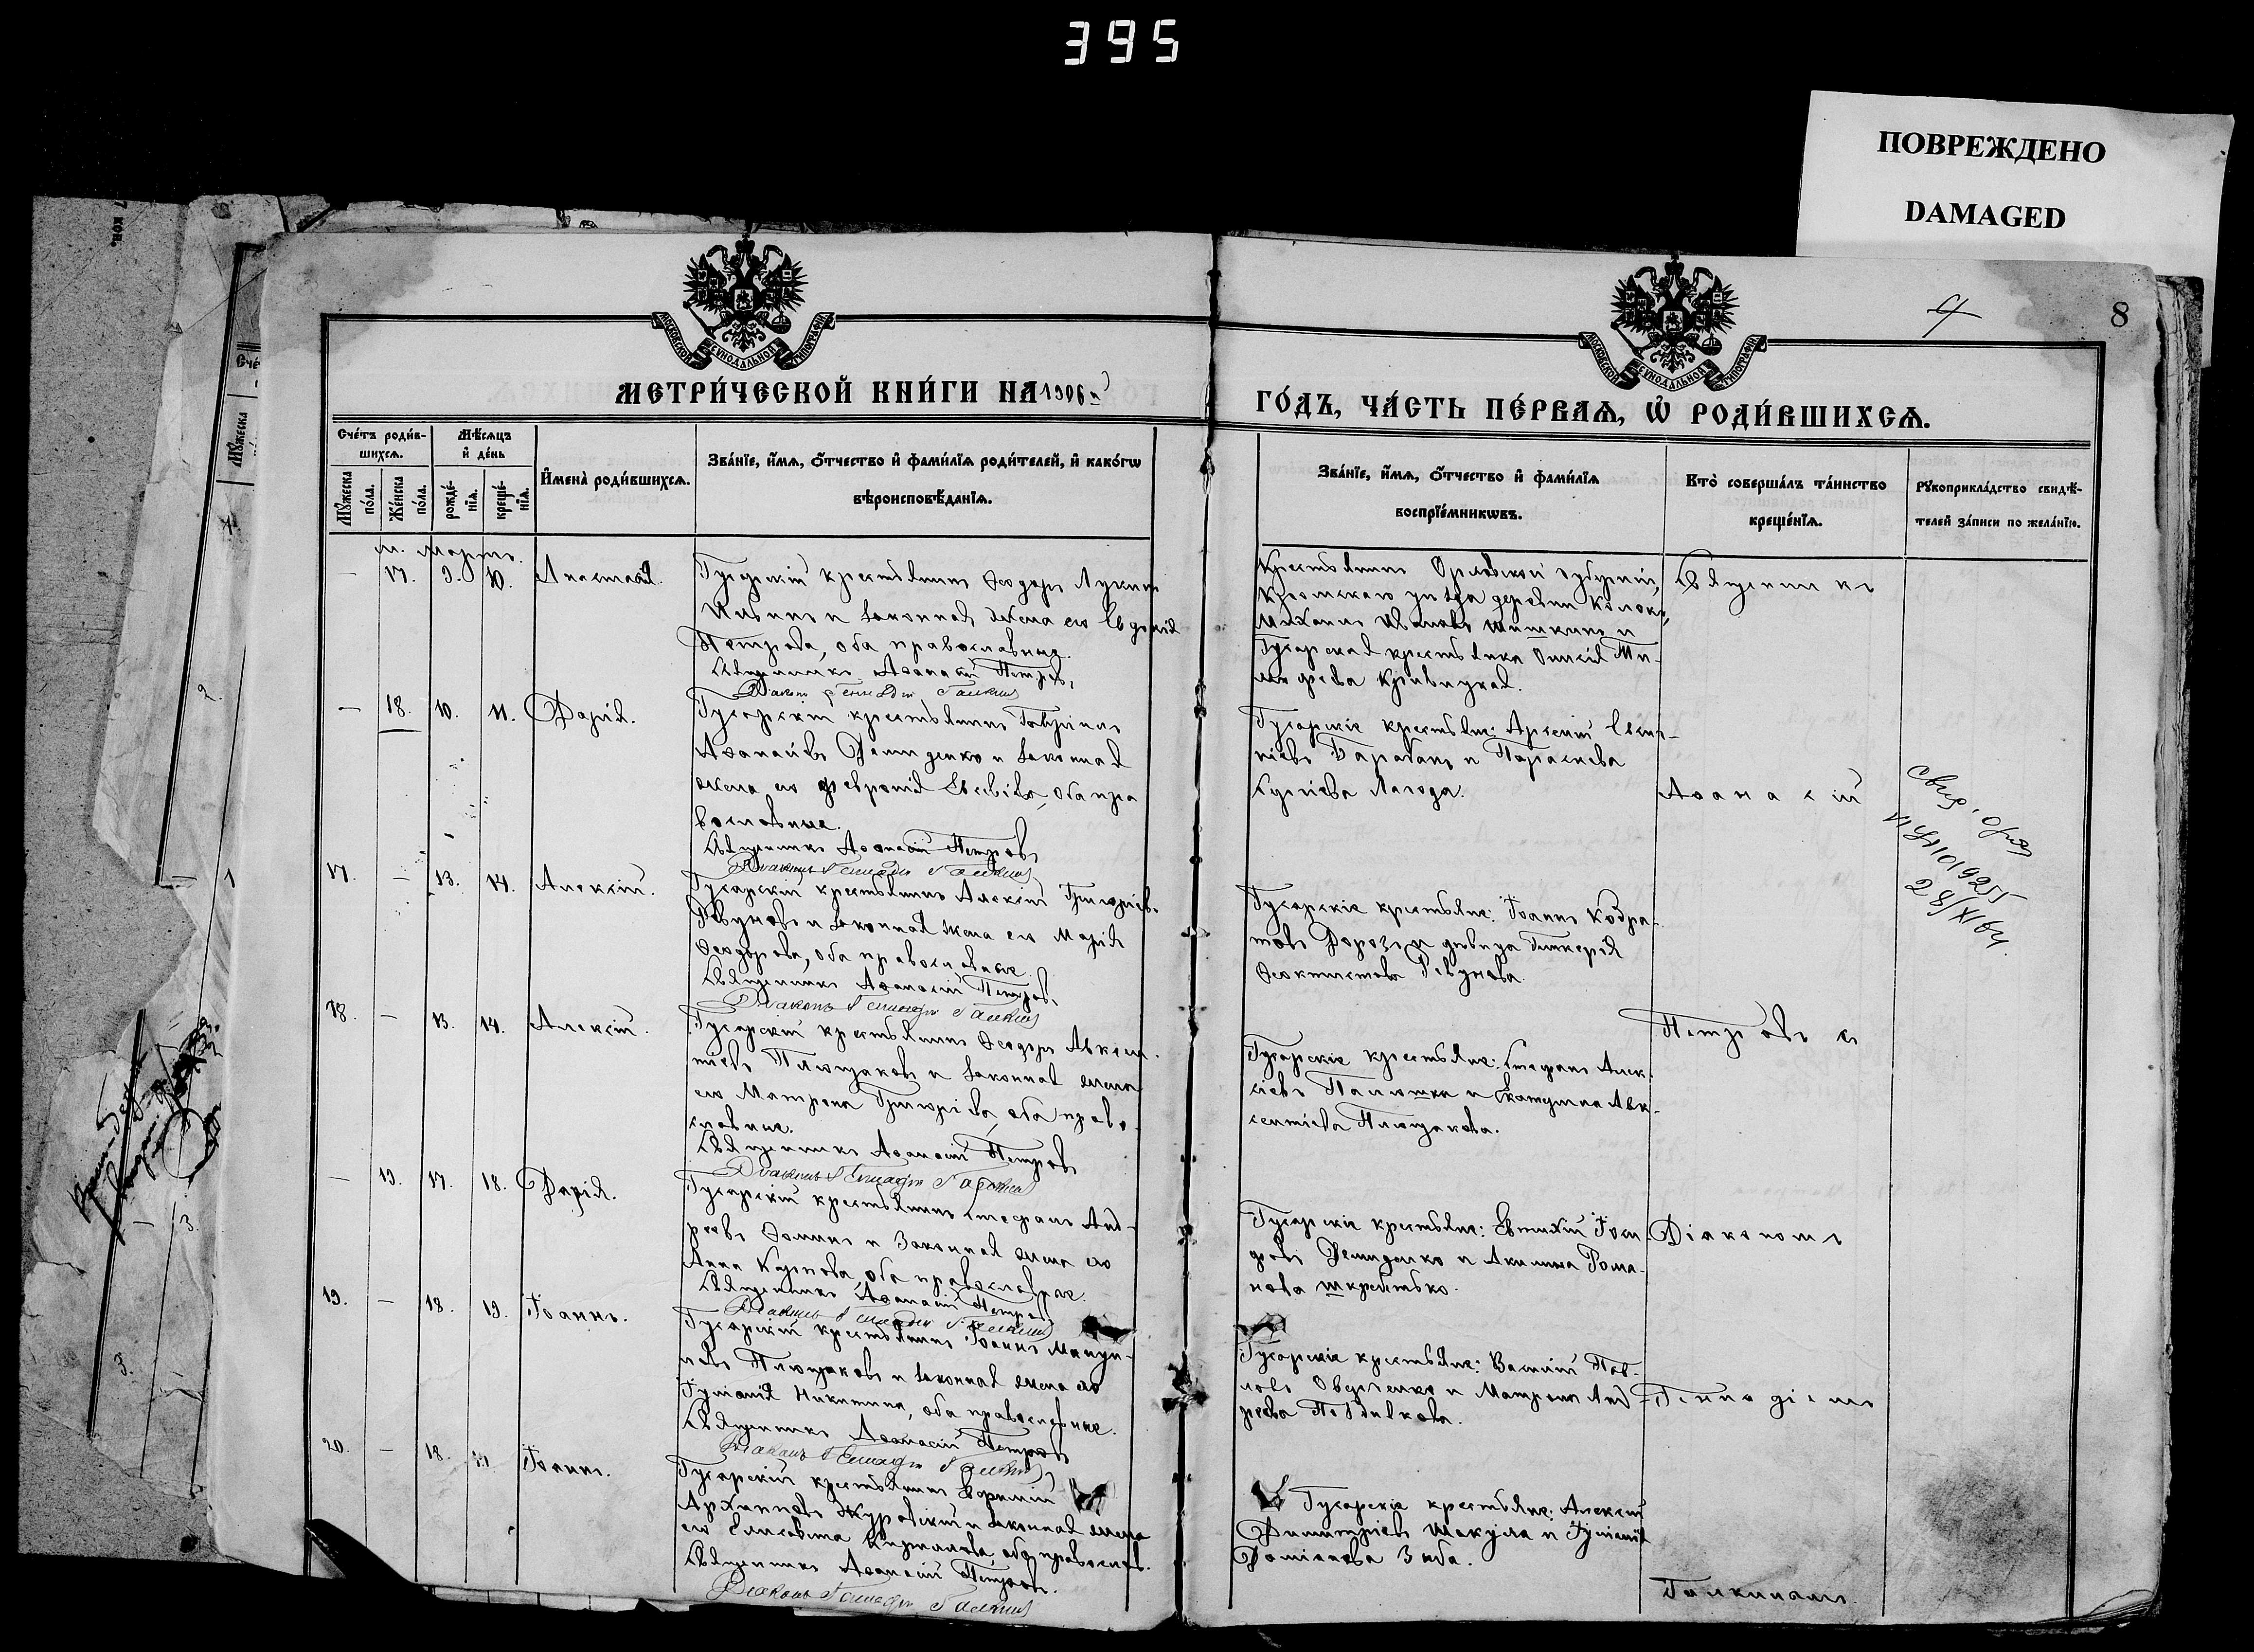 395
ПОВРЕЖДЕНО
DAMAGED
4
8
МОСКОВСКОЙ СѴНОДАЛЬНОЙ ТИПОГРАФІИ
МОСКОВСКОЙ СѴНОДАЛЬНОЙ ТИПОГРАФІИ
МЕТРИ́ЧЕСКОЙ КНИ́ГИ НА 1906 й
ГО́ДЪ, ЧА́СТЬ ПЕ́РВАѦ, Ѡ҆ РОДИ́ВШИХСѦ.
Сче́тъ роди́в-
шихсѧ.
Мꙋ́жеска по́ла.
Же́нска по́ла.
Мѣ́сѧцъ
и҆ де́нь
рожде́-
нїѧ.
креще́-
нїѧ.
И҆мена̀ роди́вшихсѧ.
Зва́нїе, и҆́мѧ, ѻ҆́тчество и҆ фами́лїѧ роди́телей, и҆ како́гѡ
вѣроисповѣ́данїѧ.
Зва́нїе, и҆́мѧ, ѻ҆́тчество и҆ фами́лїѧ
воспрїе́мникѡвъ.
Кто̀ соверша́лъ та́инство
креще́нїѧ.
Рꙋкоприкла́дство свидѣ́-
телей за́писи по жела́нїю.
м. Мартъ.
— 17. 9. 10. Анастасія.
Гусарскій крестьянинъ Ѳеодоръ Лукинъ
и законная жена его Евдокія
Петрова, оба православные.
Священникъ Аѳанасій Петровъ,
Діаконъ Геннадій Галкинъ
Крестьянинъ Орловской губерніи,
Кромскаго уѣзда деревни
Михаилъ Ивановъ Шишкинъ и
Гусарская крестьянка Ти-
моѳеева Кривицкая.
Священникъ
— 18. 10. 11. Дарія.
Гусарскій крестьянинъ Гавріилъ
Аѳанасіевъ Демиденко и законная
жена его Февронія Евсевіева, оба пра
вославные.
Священникъ Аѳанасій Петровъ
Діаконъ Геннадій Галкинъ
Гусарскіе крестьяне: Арсеній
Барабанъ и Параскева
Сергіева Лагода.
Аѳанасій
17. — 13. 14. Алексій.
Гусарскій крестьянинъ Алексій Григоріевъ
Ревуновъ и законная жена его Марія
Ѳеодорова, оба православные.
Священникъ Аѳанасій Петровъ,
Діаконъ Геннадій Галкинъ
Гусарскіе крестьяне: Іоаннъ Кодра-
товъ и дѣвица Гликерія
Ѳеоктистова Ревунова.
28/XI 64
18. — 13. 14. Алексій.
Гусарскій крестьянинъ Ѳеодоръ Авксен-
тіевъ Плющаковъ и законная жена
его Матрона Григоріева, оба право-
славные.
Священникъ Аѳанасій Петровъ
Діаконъ Геннадій Галкинъ
Гусарскіе крестьяне: Стефанъ Алек-
сіевъ и Екатерина Авк-
сентіева Плющакова.
Петровъ съ
— 19. 17. 18. Дарія.
Гусарскій крестьянинъ Стефанъ Анд-
реевъ Ѳоминъ и законная жена его
Анна Карпова, оба православные.
Священникъ Аѳанасій Петровъ
Діаконъ Геннадій Галкинъ
Гусарскіе крестьяне: Евтихій
Демиденко и Акилина Рома-
нова
Діакономъ
19. — 18. 19. Іоаннъ.
Гусарскій крестьянинъ Іоаннъ Мануи-
ловъ Плющаковъ и законная жена его
Іуліанія Никитина, оба православные.
Священникъ Аѳанасій Петровъ
Діаконъ Геннадій Галкинъ
Гусарскіе крестьяне: Василій Пав-
ловъ Оверченко и Матрона Анд-
реева
Геннадіемъ
20. — 18. Іоаннъ.
Гусарскій крестьянинъ Ефимій
Архиповъ Журавскій и законная жена
его Елисавета Кириллова, оба православ.
Священникъ Аѳанасій Петровъ.
Діаконъ Геннадій Галкинъ
Гусарскіе крестьяне: Алексій
Димитріевъ Шакула и Іуліанія
Даміанова
Галкинымъ